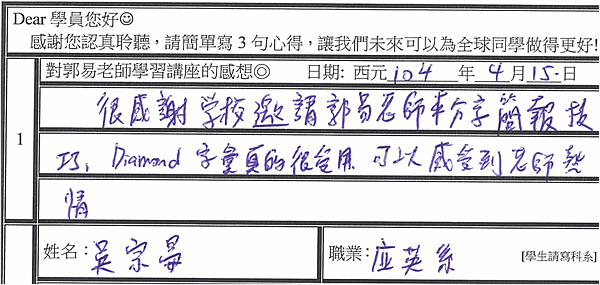 Dear 學員您好☺
感謝您認真聆聽，請簡單寫 3 句心得，讓我們未來可以為全球同學做得更好!
對郭易老師學習講座的感想◎ 日期: 西元 104 年 4 月 15 日
1
很感謝学校邀請郭易老師来分享簡報技
巧，Diamond 字彙真的很實用 可以感受到老師熱
情
姓名: 吳宗 職業: 应英系 [學生請寫科系]